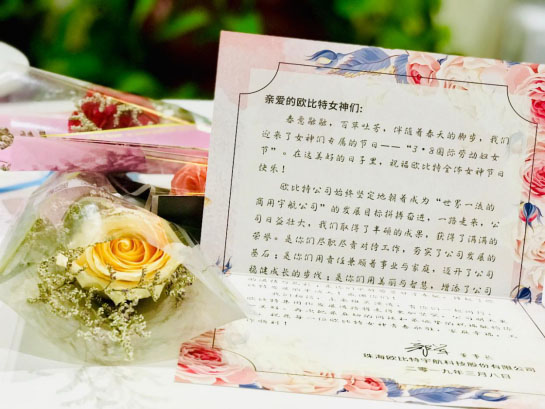 亲爱的欧比特女神们：
春意融融，百草吐芳，伴随着春天的脚步，我们
迎来了女神们专属的节日——“3·8国际劳动妇女
节”。在这美好的日子里，祝福欧比特全体女神节日
快乐！
欧比特公司始终坚定地朝着成为“世界一流的
商用宇航公司”的发展目标拼搏奋进，一路走来，公
司日益壮大，我们取得了丰硕的成果，获得了满满的
荣誉。是你们尽职尽责对待工作，夯实了公司发展的
基石；是你们用责任兼顾着事业与家庭，迈开了公司
稳健成长的步伐；是你们用美丽与智慧，增添了公司
董事长
珠海欧比特宇航科技股份有限公司
二〇一九年三月八日